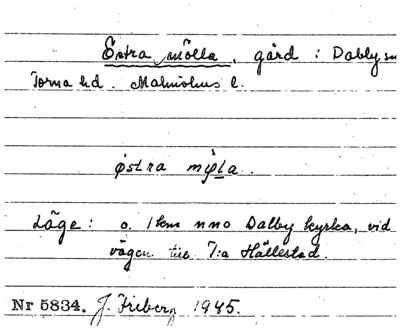 Östra mölla, gård : Dalby sn
Torna hd. Malmöhus l.
östra møla.
Läge: o. 1 km nno Dalby kyrka, vid
vägen till T:a Hällestad.
Nr 5834. J. Friberg 1945.